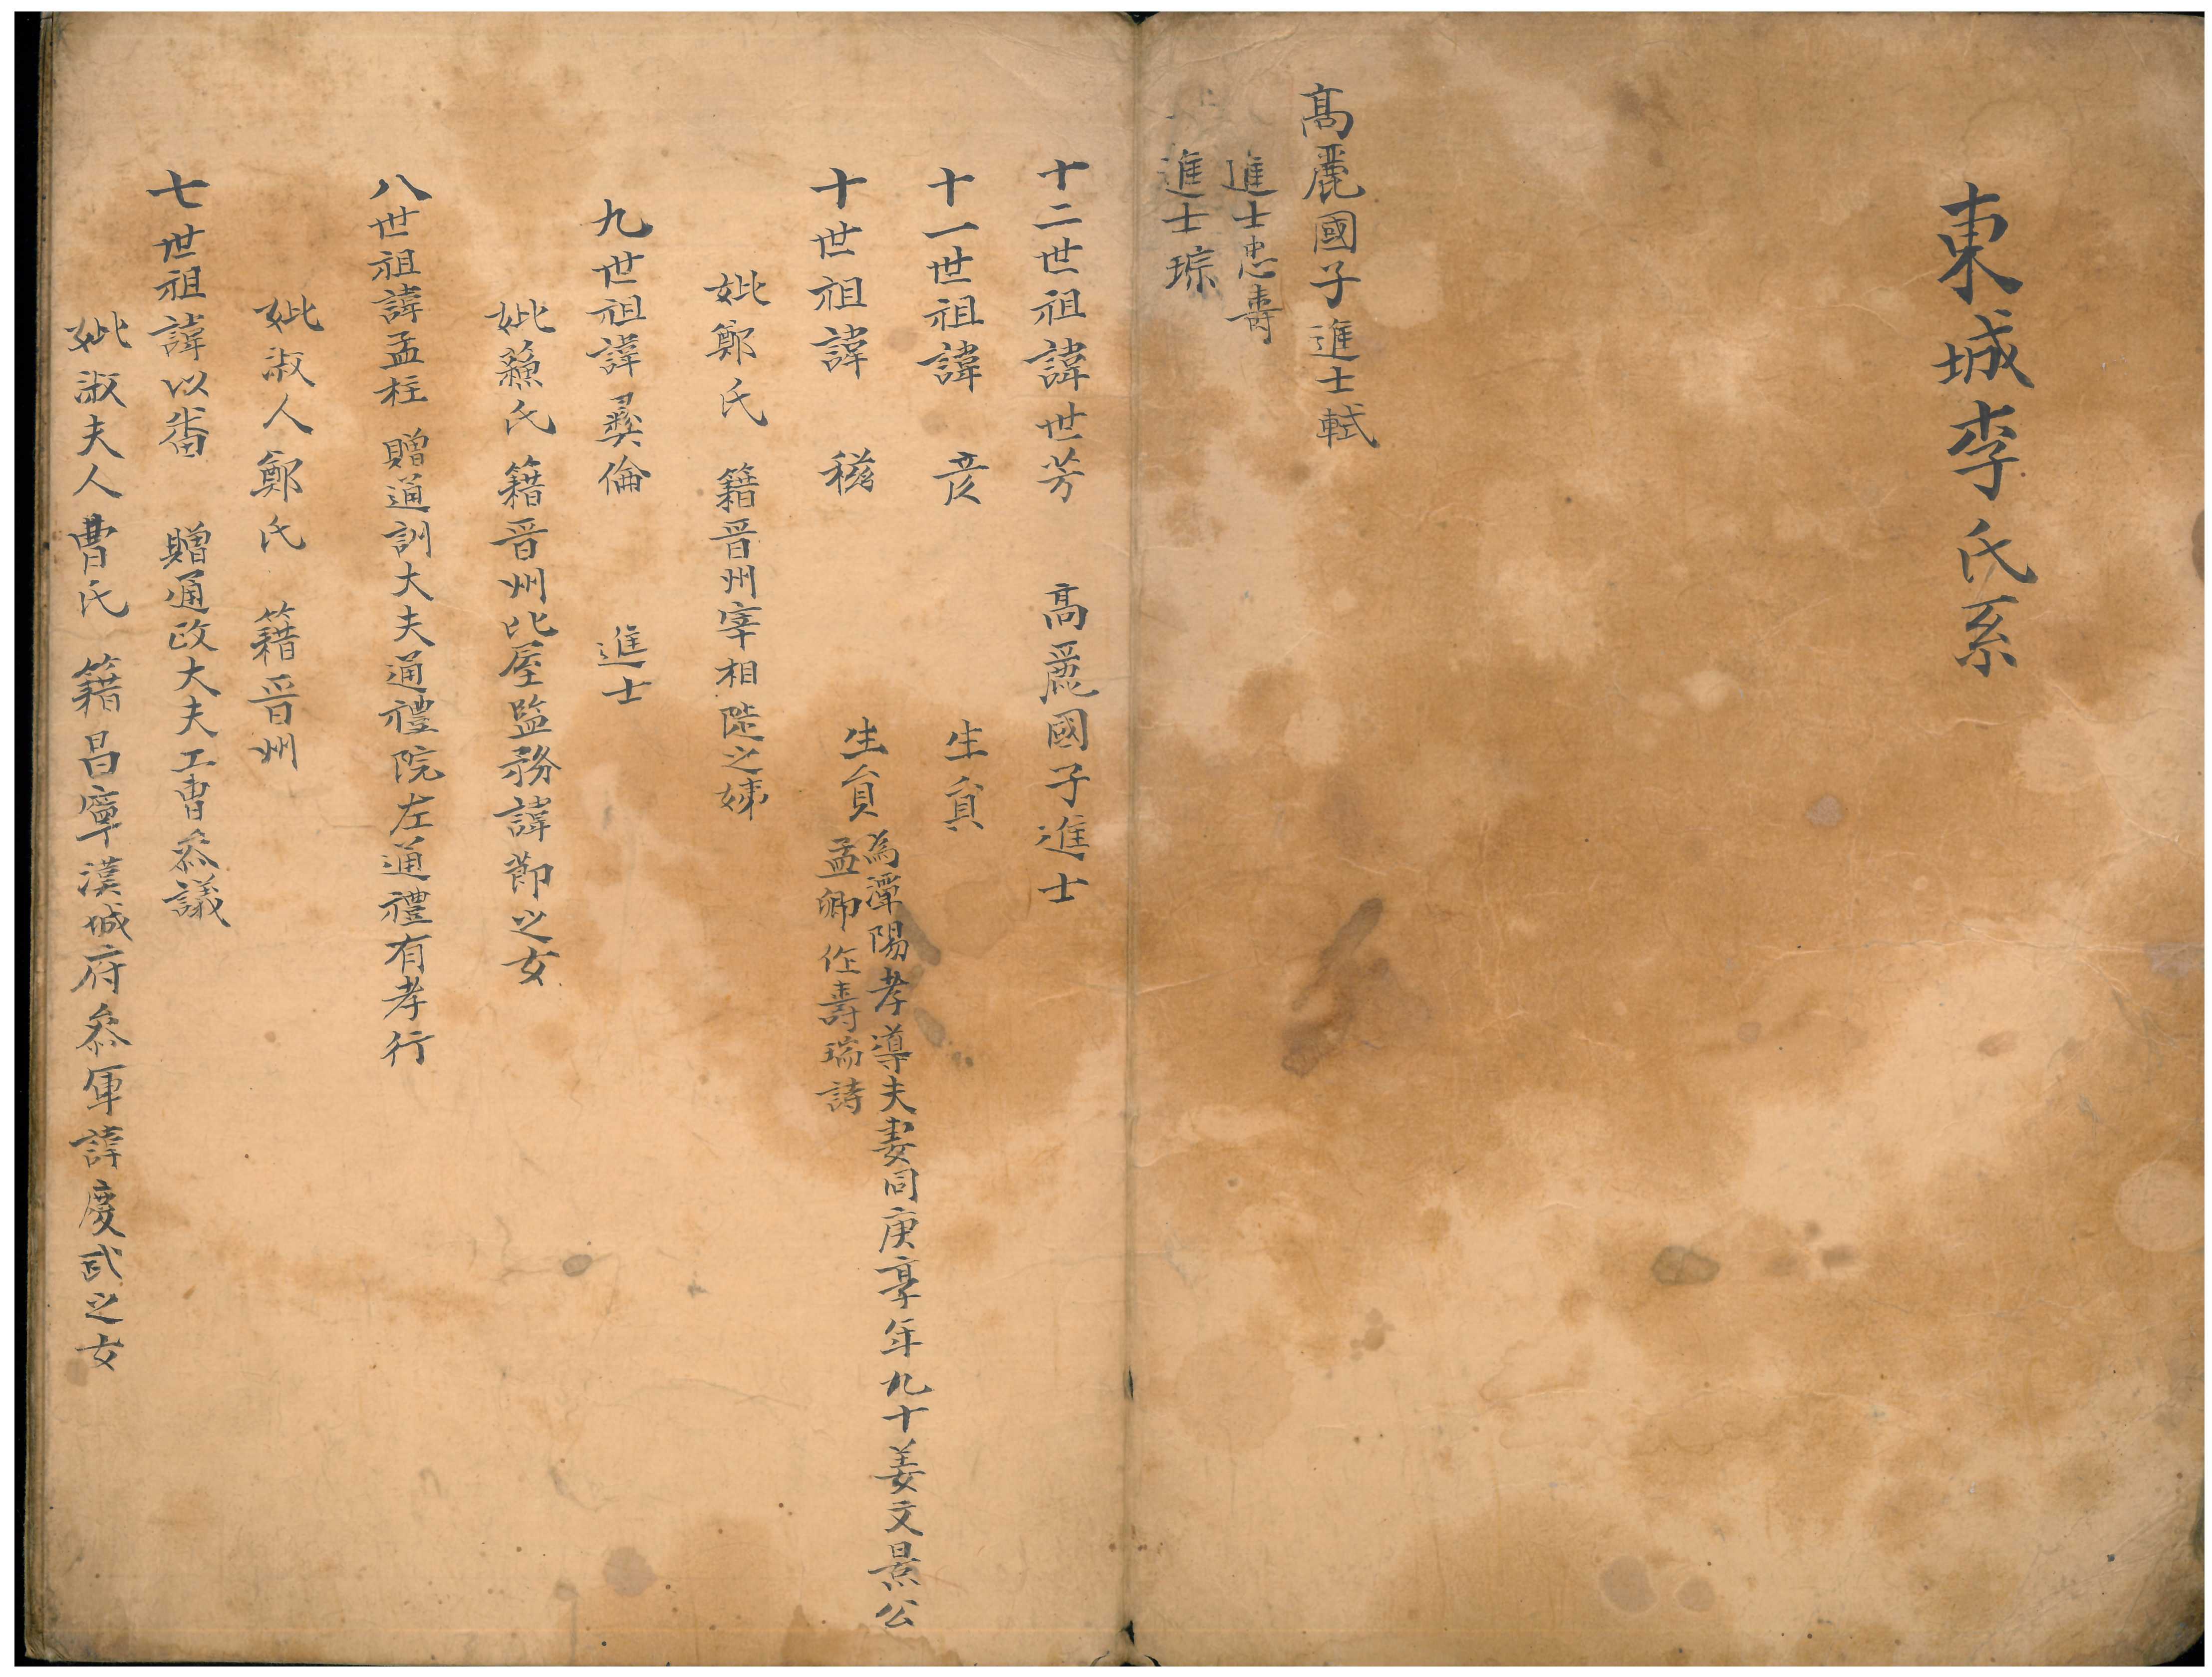 東城李氏系
高麗國子進士軾
進士忠壽
進士琮
十二世祖諱世芳 高麗國子進士
十一世祖諱 彦 生員
十世祖諱 稵 生員 為潭陽孝導夫妻同庚享年九十姜文景公
孟卿作壽瑞詩
妣鄭氏 籍晋州宰相陟之娣
九世祖諱彛倫 進士
妣蘓氏籍晋州比屋監務諱節之女
八世祖諱孟柱 贈通訓大夫通禮院左通禮有孝行
妣淑人鄭氏 籍晋州
七世祖諱以畨 贈通政大夫工曹叅議
妣淑夫人曹氏 籍昌寧漢城府叅軍諱慶武之女